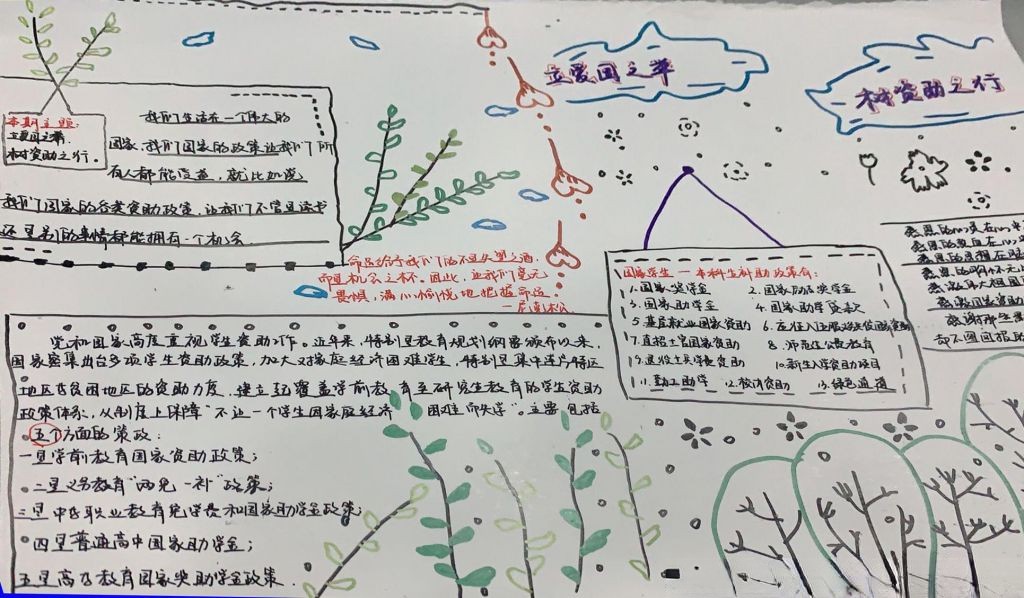 立爱国之举
树资助之行
本期主题:
立爱国之举
树资助之行。
我们生活在一个伟大的
国家,我们国家的政策让我们所
有人都能受益,就比如说
我们国家的各类资助政策,让我们不管是读书
还是别的事情都能拥有一个机会.
命运给予我们的不是失望之酒,
而是机会之杯。因此,让我们毫无
畏惧,满心愉悦地把握命运。
—尼克松
党和国家高度重视学生资助工作。近年来,特别是教育规划纲要颁布以来,
国家密集出台多项学生资助政策,加大对家庭经济困难学生,特别是集中连片特区
地区贫困地区的资助力度,建立起覆盖学前教育至研究生教育的学生资助
政策体系,从制度上保障“不让一个学生因家庭经济困难而失学”。主要包括
五个方面的策政:
一是学前教育国家资助政策;
二是义务教育“两免一补”政策;
三是中等职业教育免学费和国家助学金政策;
四是普通高中国家助学金;
五是高等教育国家奖助学金政策.
国家学生—本科生科助政策有:
1.国家奖学金 2.国家励志奖学金
3.国家助学金 4.国家助学贷款
5.基层就业国家资助 6.应征入伍服兵役国家资助
7.直招士官国家资助 8.师范生公费教育
9.退役士兵学费资助 10.新生入学资助项目
11.勤工助学 12.校内资助 13.绿色通道
感恩的心灵在心中
感恩的
感恩的
感恩的
感激伟大祖国
感激国家资助
感谢那些
却不图回报